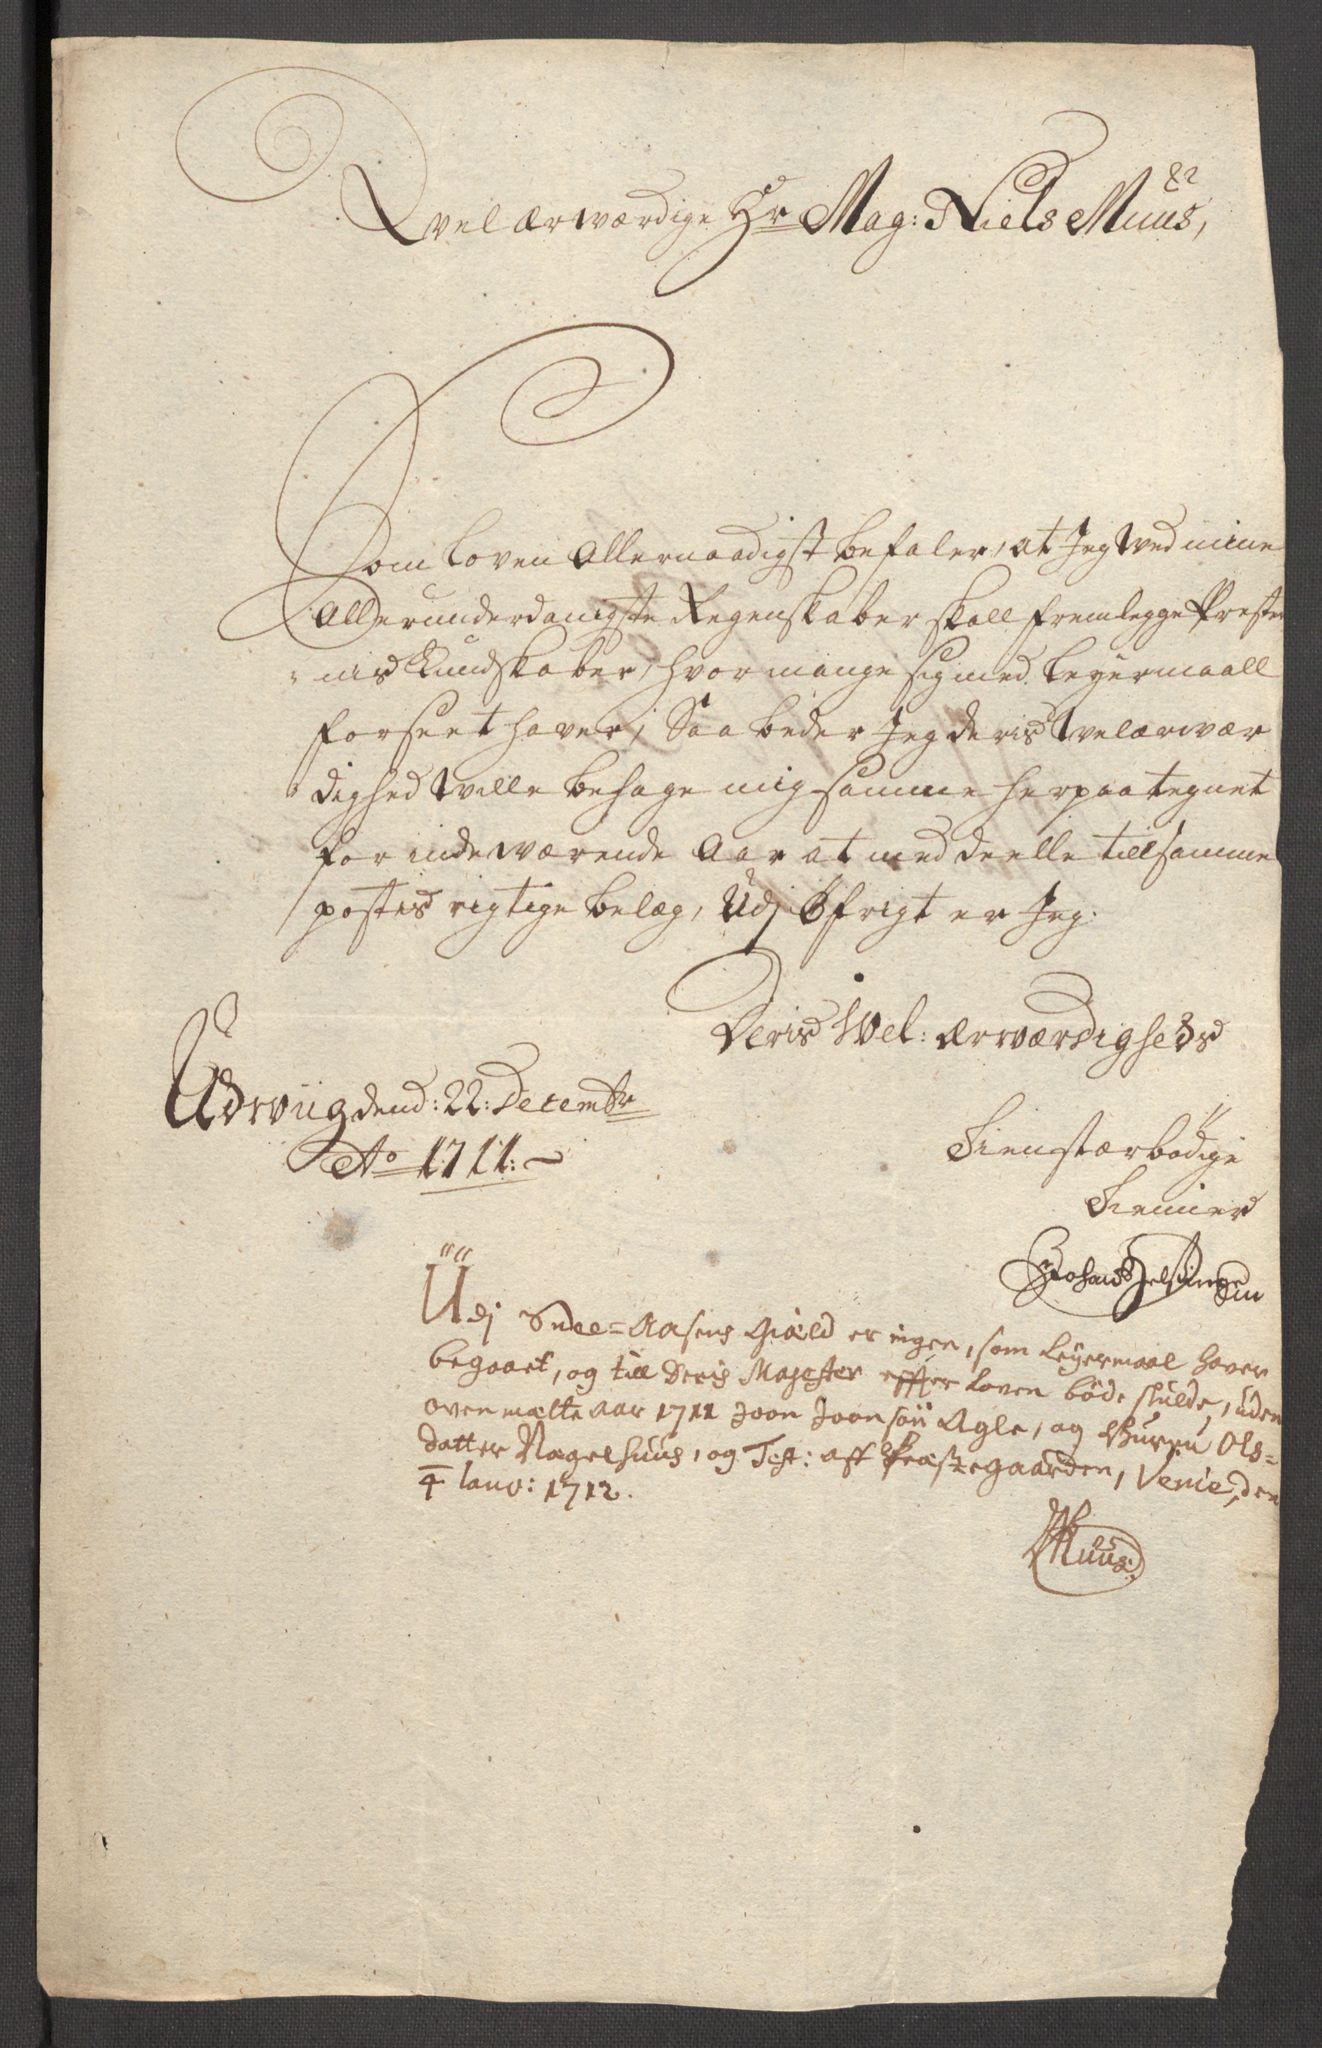 Velærwærdige Hr Mag: Niels Muus,
Som Loven Allernaadigst befaler, at Jeg Wed mine
Allerunderdanigste Regenskaber skall fremlegge Preste
nis Kundskaber, hvor mange sig med Leyermaall
forseet haver, Saa beder Jeg deris Welærwær
dighed Wille behage mig samme herpaa tegnet
for indewærende Aar at meddeelle till samme
postis rigtige belæg, Udj Öfrigt er Jeg.
Deris Wel: ærwærdigheds
Udvüg dend: 22: Decembr
Ao 1711:
Tienstærbödige
Tienner
Udj Snee=Aasens Giæld er ingen, som Leyermaal haver
begaaet, og till Deris Majestet effter Loven böde skulde, uden
ovenmælte Aar 1711 Joon Joonsön Agle, og Guren Ols=
datter Nagelhuus, og Test: aff Præstegaarden, Venie, den
4 Janv: 1712.
NMuus.